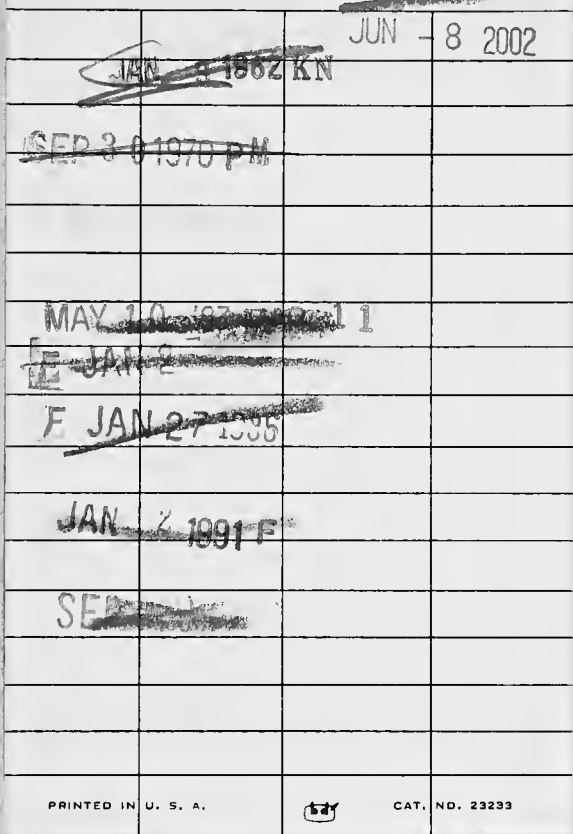 JUN - 8 2002
JAN 1962 KN
SEP 3 0 1970 PM
MAY 10 '83 11
E JAN 2
F JAN 27 1986
JAN 2 1991 F
PRINTED IN U. S. A.
CAT. NO. 23233